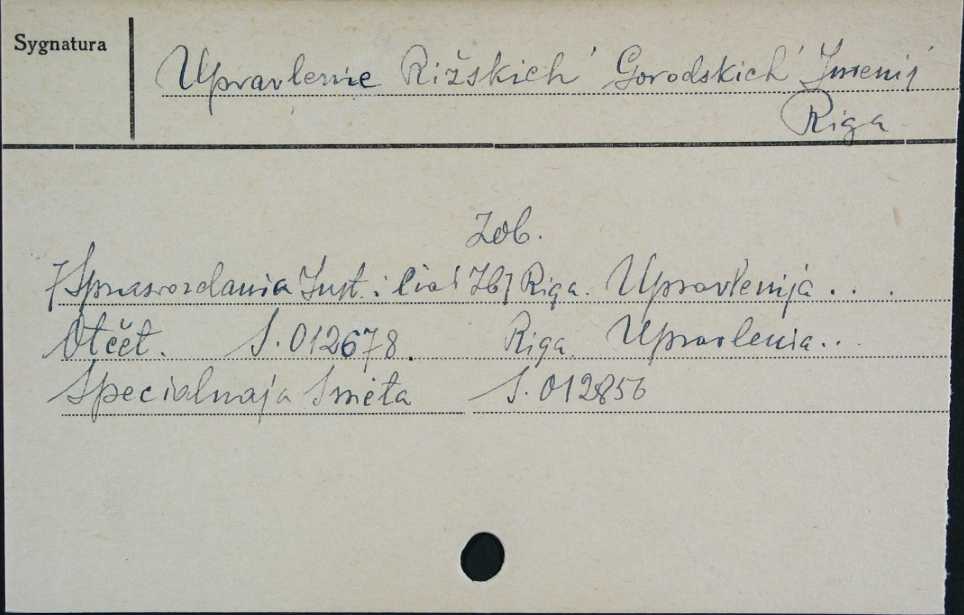 Sygnatura
Upravlenie Rižskich' Gorodskich' Imenij
Riga
Zob.
[Sprawozdania Inst. i Ciał Zb] Riga. Upravlenija . . .
Otčët. S. 012678. Riga. Upravlenia . .
Specialnaja Smeta S. 012856